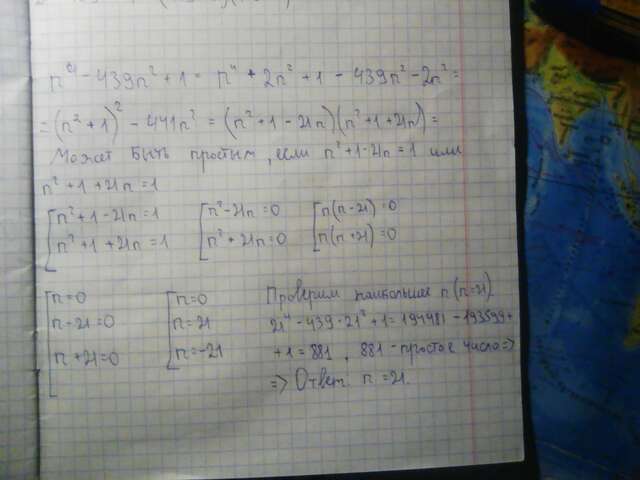 n⁴ - 439n² + 1 = n⁴ + 2n² + 1 - 439n² - 2n² =
= (n² + 1)² - 441n² = (n² + 1 - 21n)(n² + 1 + 21n) =
Может быть простым, если n² + 1 - 21n = 1 или
n² + 1 + 21n = 1
[n² + 1 - 21n = 1 [n² - 21n = 0 [n(n - 21) = 0
n² + 1 + 21n = 1 n² + 21n = 0 n(n + 21) = 0
[n = 0 [n = 0 Проверим наибольшее n (n = 21).
n - 21 = 0 n = 21 21⁴ - 439 · 21² + 1 = 194481 - 193599 +
n + 21 = 0 n = -21 + 1 = 881, 881 - простое число =>
=> Ответ n = 21.